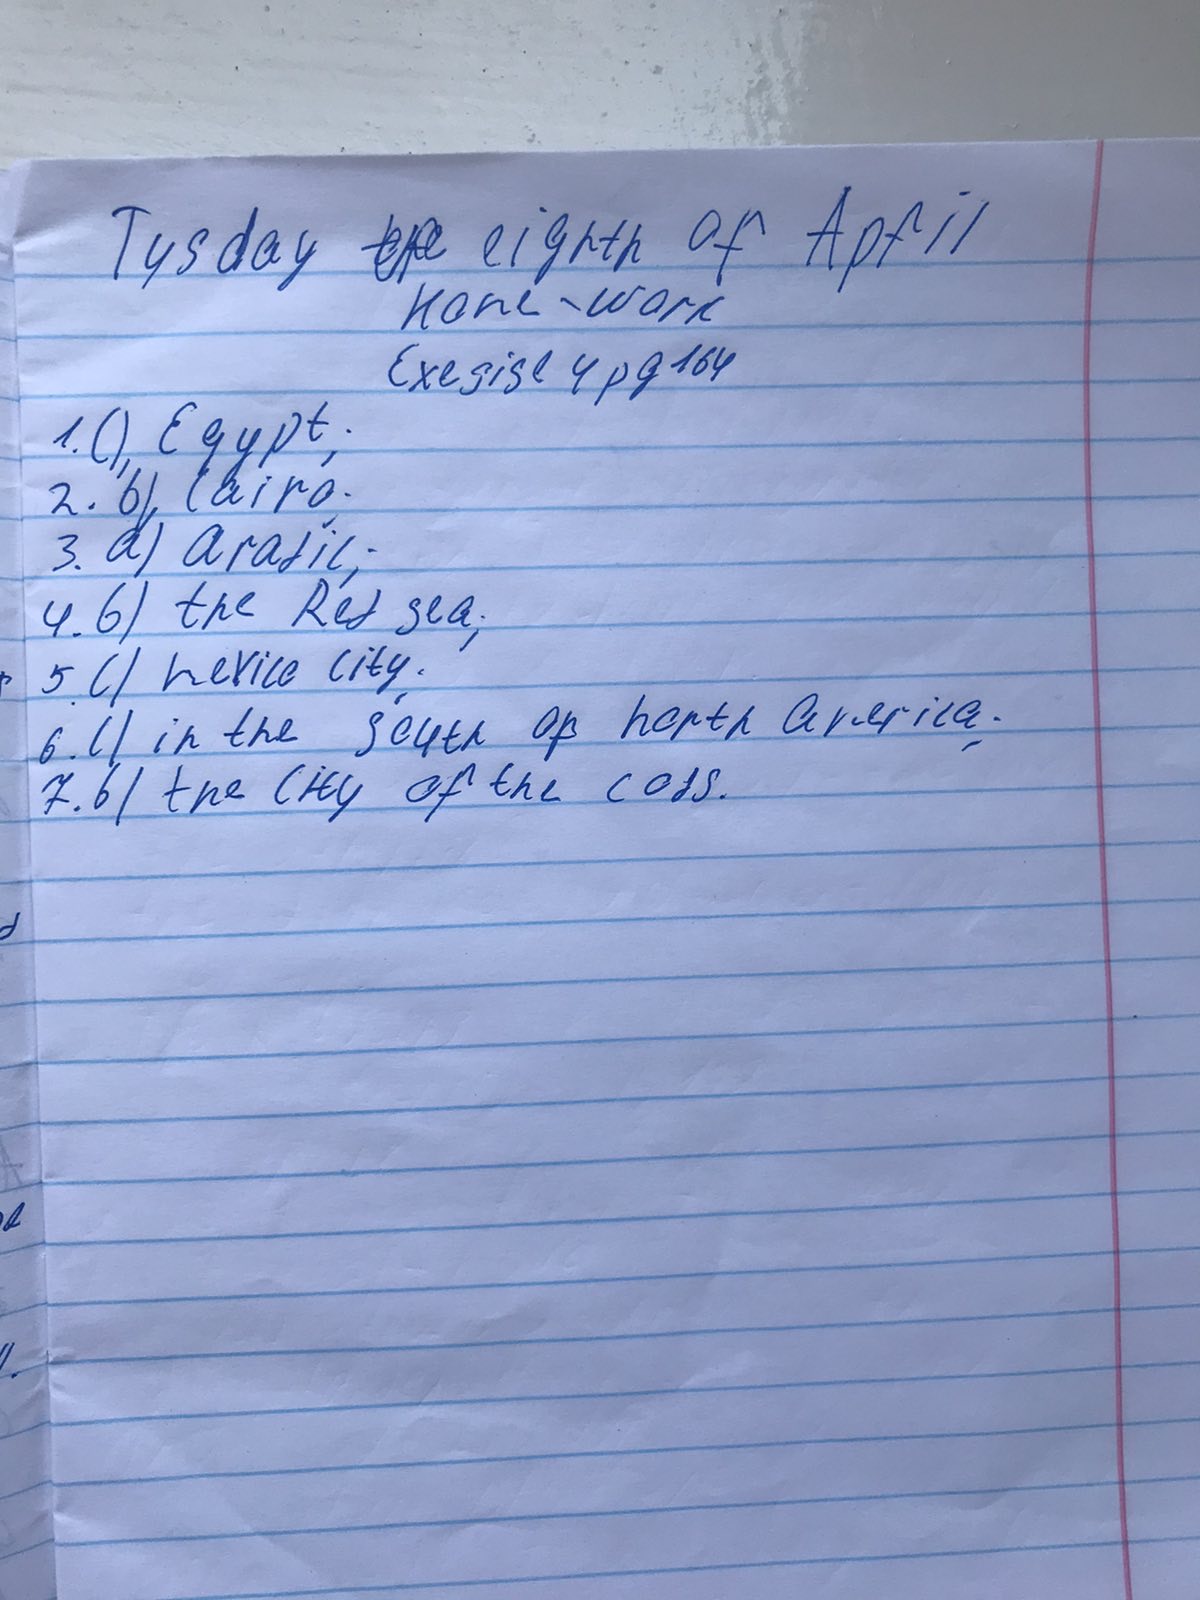 Tysday the eighth of April
Home-work
Exegise 4 pg 164
1. c), Egypt;
2. b), Cairo;
3. a) arabic;
4. b) the Red sea;
5. c) mexico city;
6. c) in the south of north america;
7. b) the city of the cods.